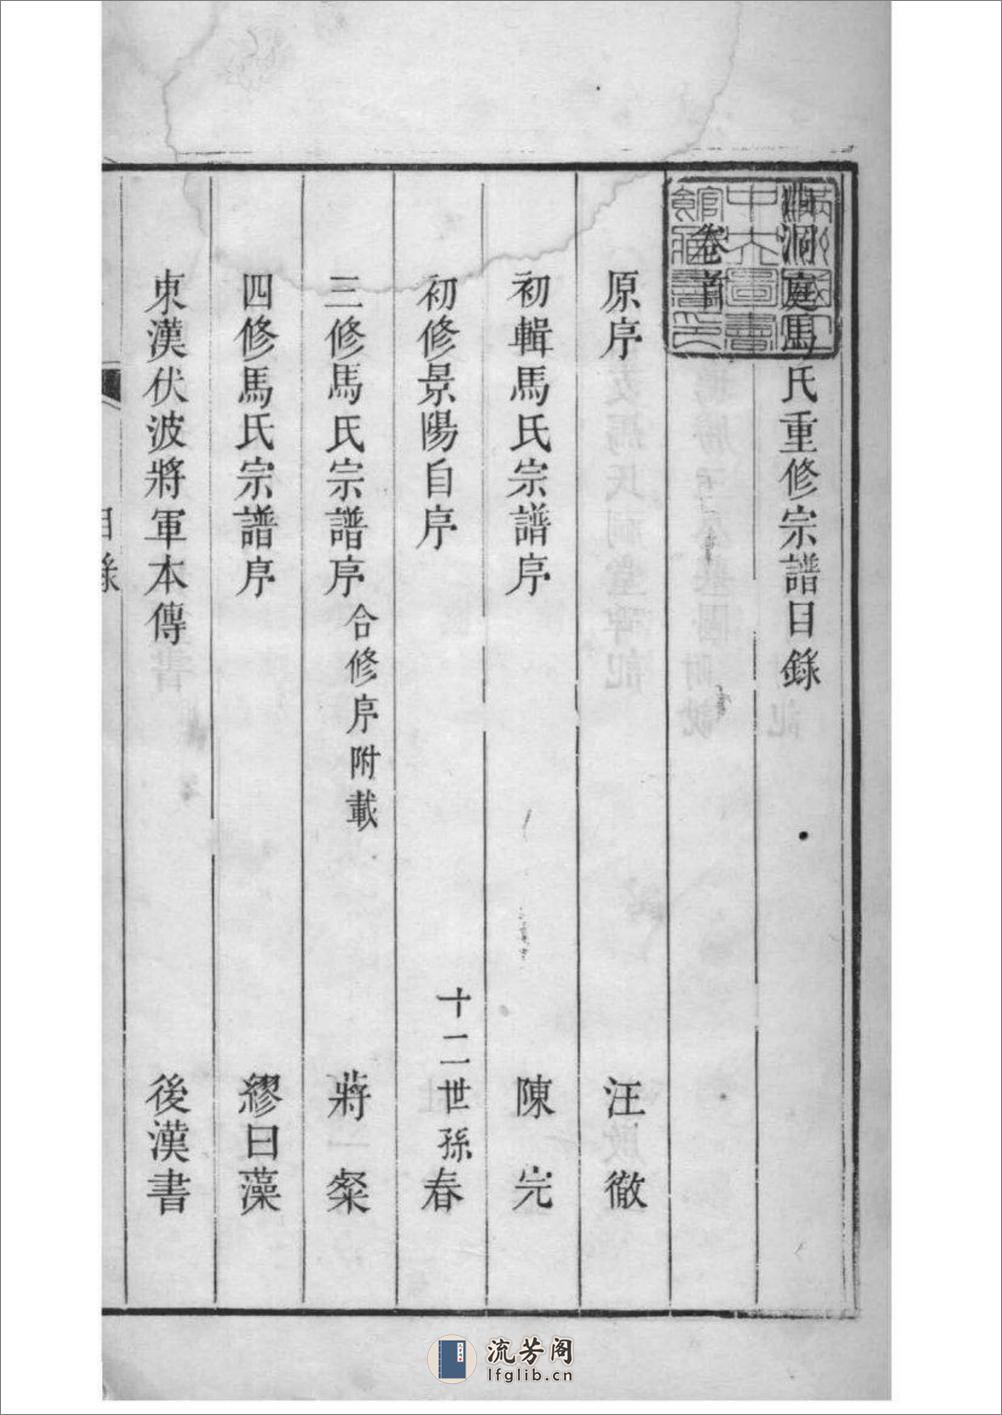 洞庭馬氏重修宗譜目錄
卷首
原序 汪徹
初輯馬氏宗譜序 陳完
初修景陽自序 十二世孫春
三修馬氏宗譜序 合修序附載 蔣燦
四修馬氏宗譜序 繆曰藻
東漢伏波將軍本傳 後漢書
目錄
流芳阁
lfglib.cn